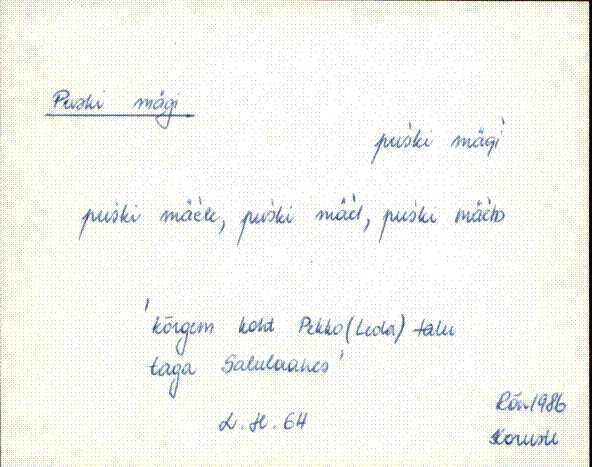 Puski mägi
puśki mägì
puśki mäèle, puśki mäèl, puśki mäèlt
'kõrgem koht Pekko (Leda) talu
taga Salulaanes'
L. H. 64
Rõn 1986